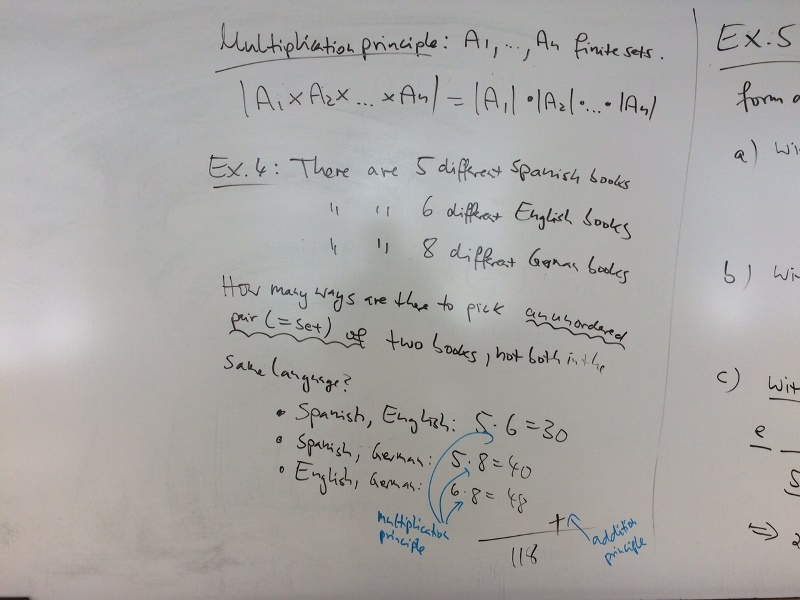 Multiplication principle: A1, ..., An finite sets.
|A1 × A2 × ... × An| = |A1| · |A2| · ... · |An|
Ex. 4: There are 5 different Spanish books
" " 6 different English books
" " 8 different German books
How many ways are there to pick an unordered
pair (= set) of two books, not both in the
same language?
• Spanish, English: 5 · 6 = 30
• Spanish, German: 5 · 8 = 40
• English, German: 6 · 8 = 48
multiplication
principle
+
addition
principle
118
Ex. 5
form
a) Wi
b) Wi
c) Wit
e
5
⇒ 2